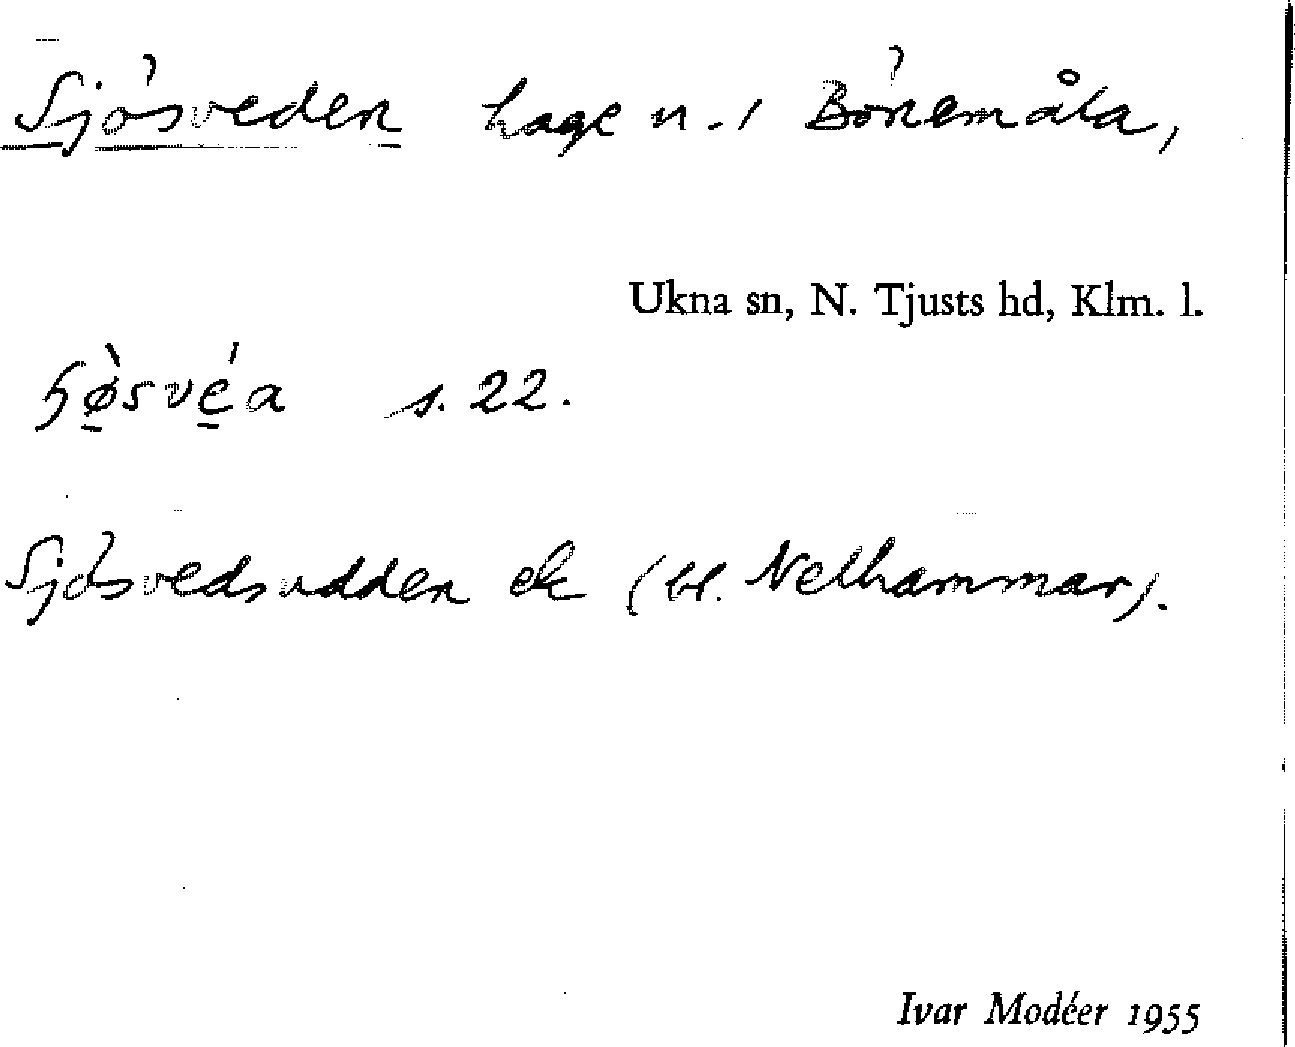 Sjösveden hage n. i Bönemåla,
Ukna sn, N. Tjusts hd, Klm. l.
ɧø̀svéa s. 22.
Sjösvedsudden ek (H. Nelhammar).
Ivar Modéer 1955